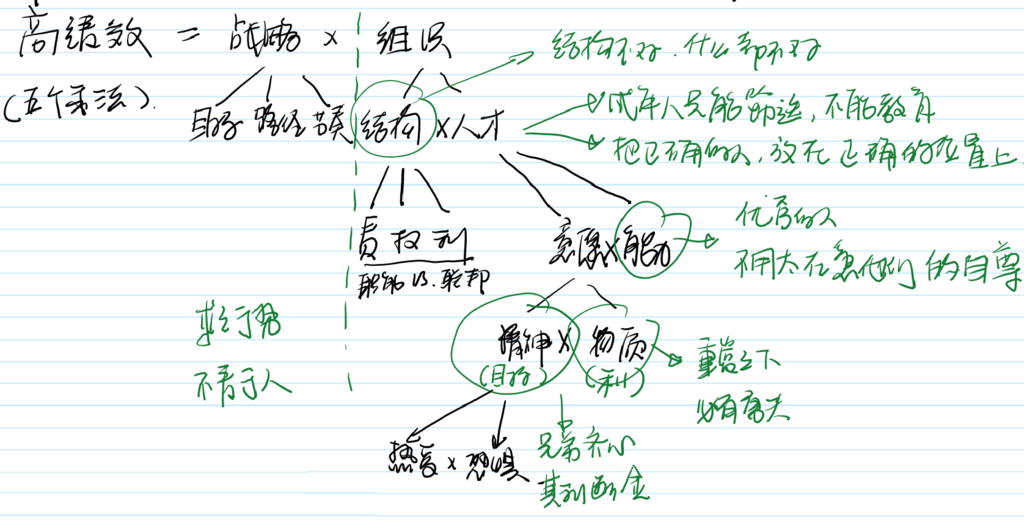 高绩效 = 战略 × 组织
(五个乘法).
结构不对.什么都不对
目标 路径 节奏 结构 × 人才
成年人只能筛选,不能教育
把正确的人,放在正确的位置上.
责 权 利
职能 vs. 联邦
意愿 × 能力
优秀的人
不用太在意他们的自尊
求之于势
不责于人
精神 × 物质
(目标) (利)
重赏之下
必有勇夫
热爱 × 恐惧
兄弟齐心
其利断金